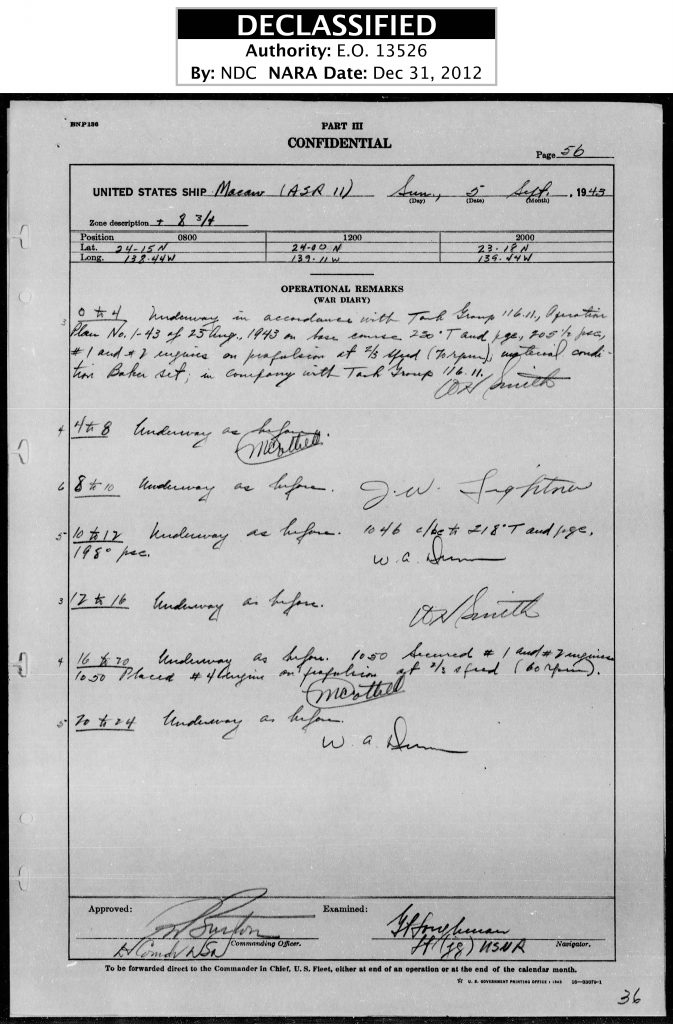 DECLASSIFIED
Authority: E.O. 13526
By: NDC NARA Date: Dec 31, 2012
BNP136
PART III
CONFIDENTIAL
Page 56
UNITED STATES SHIP Macaw (ASR 11) Sun, 5 Sept. , 1943
(Day) (Date) (Month)
Zone description + 8 3/4
Position 0800 1200 2000
Lat. 24-15 N 24-00 N 23-18 N
Long. 138-44W 139-11W 139-44W
OPERATIONAL REMARKS
(WAR DIARY)
3 0 to 4 Underway in accordance with Task Group 116.11, Operation
Plan No. 1-43 of 25 Aug., 1943 on base course 220°T and pgc, 205½ psc,
#1 and #2 engines on propulsion at 2/3 speed (70 rpm), material condi-
tion Baker set; in company with Task Group 116.11.
Smith
4 4 to 8 Underway as before.
6 8 to 10 Underway as before. J. W. Lightner
5 10 to 12 Underway as before. 1046 c/bc to 218°T and pgc,
198° psc.
W. A. Dunn
3 12 to 16 Underway as before. Smith
4 16 to 20 Underway as before. 1050 Secured #1 and #2 engines
1050 Placed #4 engine on propulsion at 2/3 speed (60 rpm).
5 20 to 24 Underway as before.
W. A. Dunn
Approved: Examined:
Burton
Lt Comdr USN Commanding Officer. Lt (jg) USNR Navigator.
To be forwarded direct to the Commander in Chief, U. S. Fleet, either at end of an operation or at the end of the calendar month.
U. S. GOVERNMENT PRINTING OFFICE : 1943 16-33079-1
36